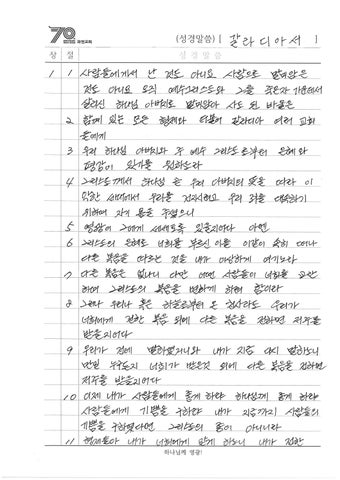 70 과천교회 (성경말씀) | 갈라디아서 |
장 절 성경말씀
1 1 사람들에게서 난 것도 아니요 사람으로 말미암은
것도 아니요 오직 예수 그리스도와 그를 죽은자 가운데서
살리신 하나님 아버지로 말미암아 사도 된 바울은
2 함께 있는 모든 형제와 더불어 갈라디아 여러 교회
들에게
3 우리 하나님 아버지와 주 예수 그리스도로부터 은혜와
평강이 있기를 원하노라
4 그리스도께서 하나님 곧 우리 아버지의 뜻을 따라 이
악한 세대에서 우리를 건지시려고 우리 죄를 대속하기
위하여 자기 몸을 주셨으니
5 영광이 그에게 세세토록 있을지어다 아멘
6 그리스도의 은혜로 너희를 부르신 이를 이같이 속히 떠나
다른 복음을 따르는 것을 내가 이상하게 여기노라
7 다른 복음은 없나니 다만 어떤 사람들이 너희를 교란
하여 그리스도의 복음을 변하게 하려 함이라
8 그러나 우리나 혹은 하늘로부터 온 천사라도 우리가
너희에게 전한 복음 외에 다른 복음을 전하면 저주를
받을지어다
9 우리가 전에 말하였거니와 내가 지금 다시 말하노니
만일 누구든지 너희가 받은것 외에 다른 복음을 전하면
저주를 받을지어다
10 이제 내가 사람들에게 좋게 하랴 하나님께 좋게 하랴
사람들에게 기쁨을 구하랴 내가 지금까지 사람들의
기쁨을 구하였다면 그리스도의 종이 아니니라
11 형제들아 내가 너희에게 알게 하노니 내가 전한
하나님께 영광!